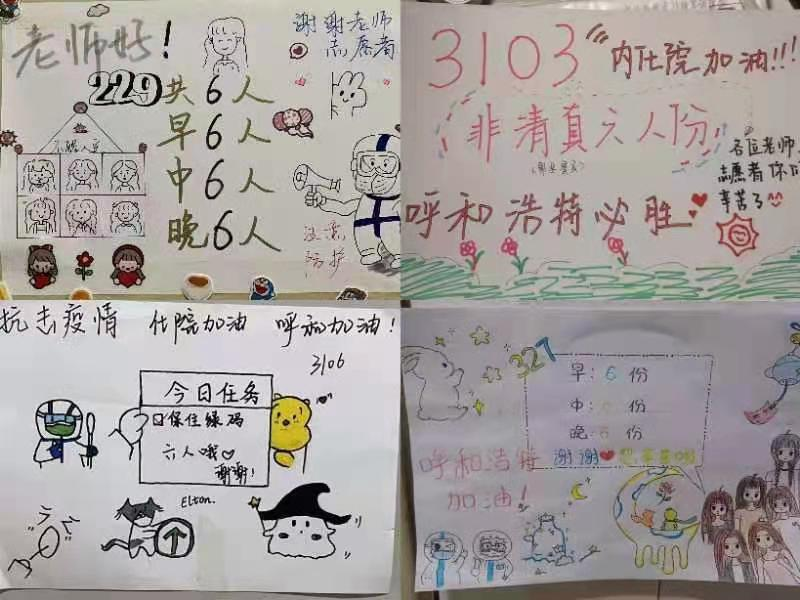 老师好！
谢谢老师
志愿者
229共6人
早6人
中6人
晚6人
注意
防护
3103
内化院加油!!!
非清真六人份
各位老师、
志愿者你们
辛苦了
呼和浩特必胜
抗击疫情 化院加油 呼和加油！
3106
今日任务
①保住绿码
六人哦♡
谢谢！
Elson.
327
早：6份
中：6份
晚：6份
谢谢❤
呼和浩特
加油！